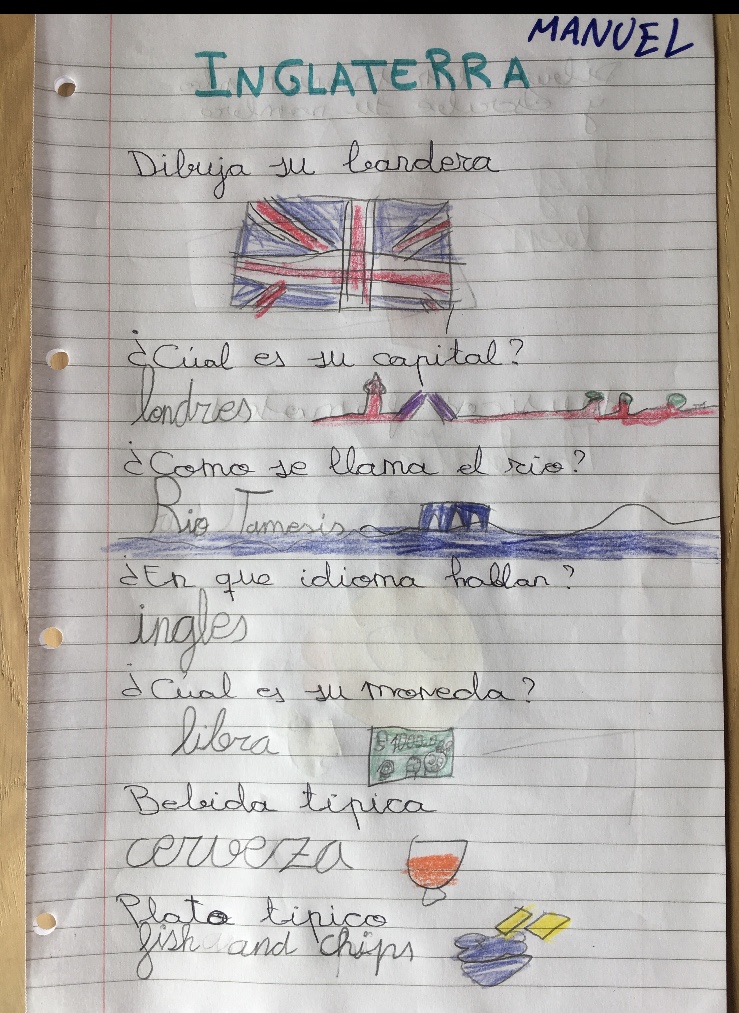 MANUEL
INGLATERRA
Dibuja su bandera
¿Cúal es su capital?
londres
¿Como se llama el rio?
Rio Tamesis
¿En que idioma hablan?
ingles
¿Cúal es su moneda?
libra
Bebida tipica
cerveza
Plato tipico
fish and chips